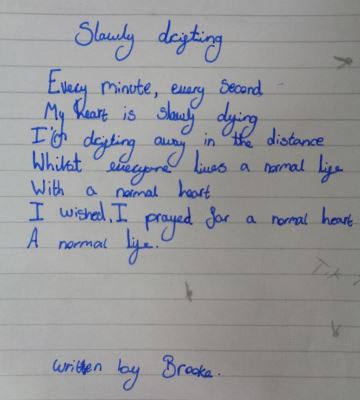 Slowly drifting
Every minute, every second
My heart is slowly dying
I'm drifting away in the distance
Whilst everyone lives a normal life
With a normal heart
I wished, I prayed for a normal heart
A normal life.
written by Brooke.